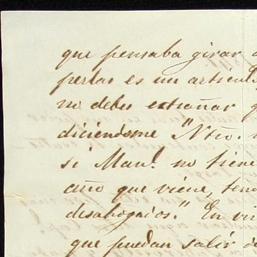 que pensaba girar
perlas es un articul
no debes extrañar q
diciéndome "Ntu.
si Manl. no tiene
año que viene, ten
desahogados." En vi
que puedan salir de